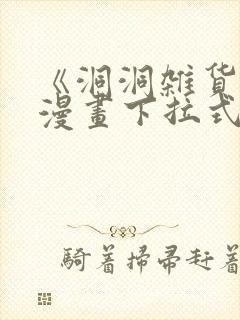 《洞洞雑货
漫畫下拉式
騎着掃帚赶着